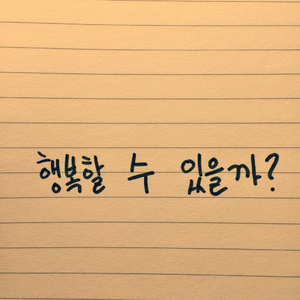 행복할 수 있을까?